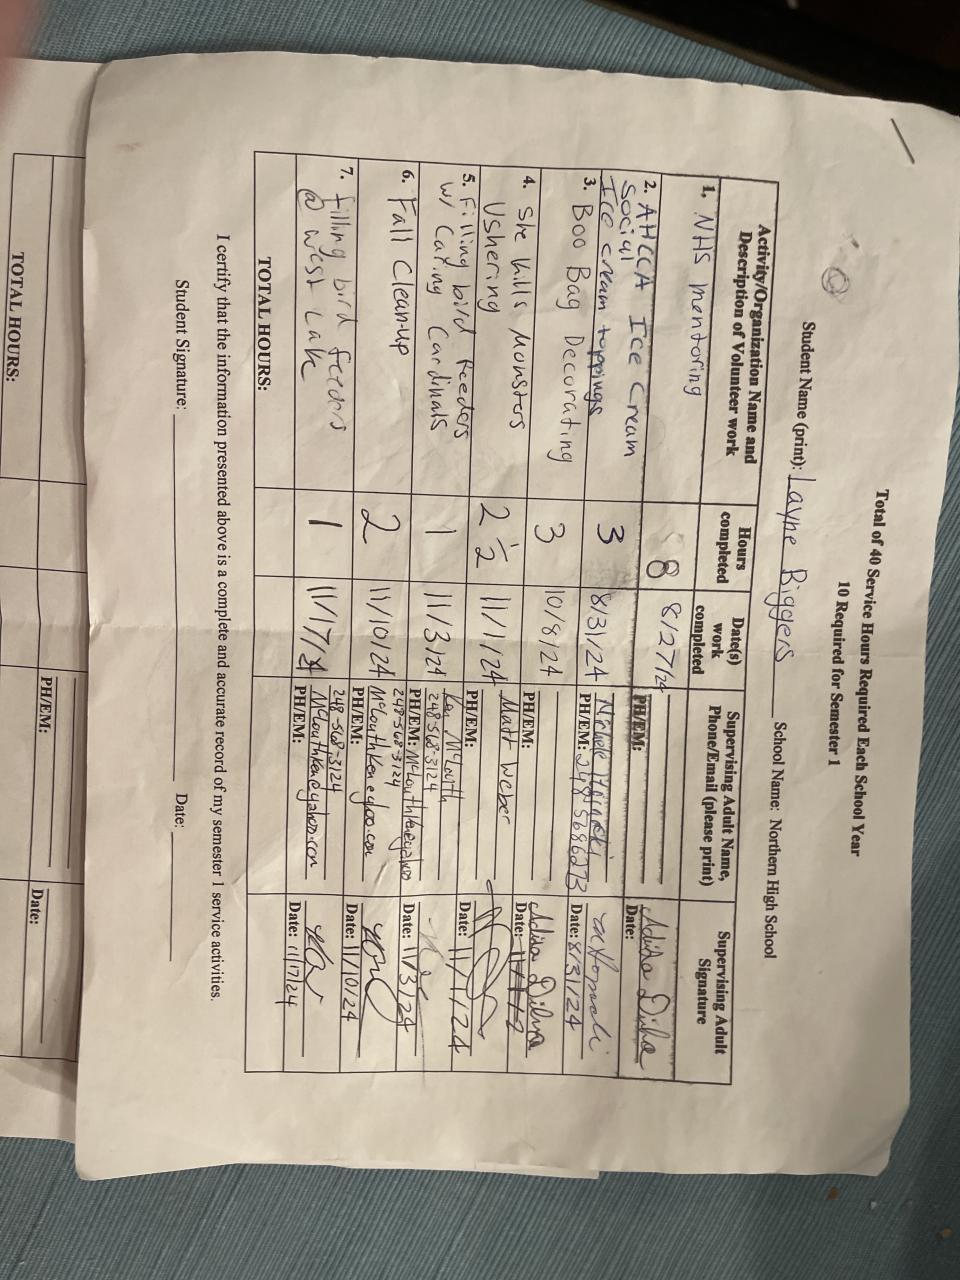 Total of 40 Service Hours Required Each School Year
10 Required for Semester 1
Student Name (print): Layne Biggers School Name: Northern High School
Activity/Organization Name and Description of Volunteer work
Hours completed
Date(s) work completed
Supervising Adult Name, Phone/Email (please print)
Supervising Adult Signature
1. NHS mentoring
8
8/27/24
PH/EM:
Date:
2. AHCCA Ice Cream
Social
Ice cream toppings
3
8/31/24
PH/EM: 248 5686273
Date: 8/31/24
3. Boo Bag Decorating
3
10/8/24
PH/EM:
Date:
4. She Kills Monsters
Ushering
2 1/2
11/1/24
Matt Weber
PH/EM:
Date: 11/1/24
5. Filling bird feeders
w/ Caring Cardinals
1
11/3/24
Ken McLouth
248-568-3124
PH/EM:
Date: 11/3/24
6. Fall Clean-up
2
11/10/24
248-568-3124
PH/EM:
Date: 11/10/24
7. filling bird feeders
@ West Lake
1
11/17/24
248-568-3124
PH/EM:
Date: 11/17/24
TOTAL HOURS:
I certify that the information presented above is a complete and accurate record of my semester 1 service activities.
Student Signature: Date:
PH/EM:
Date:
TOTAL HOURS: